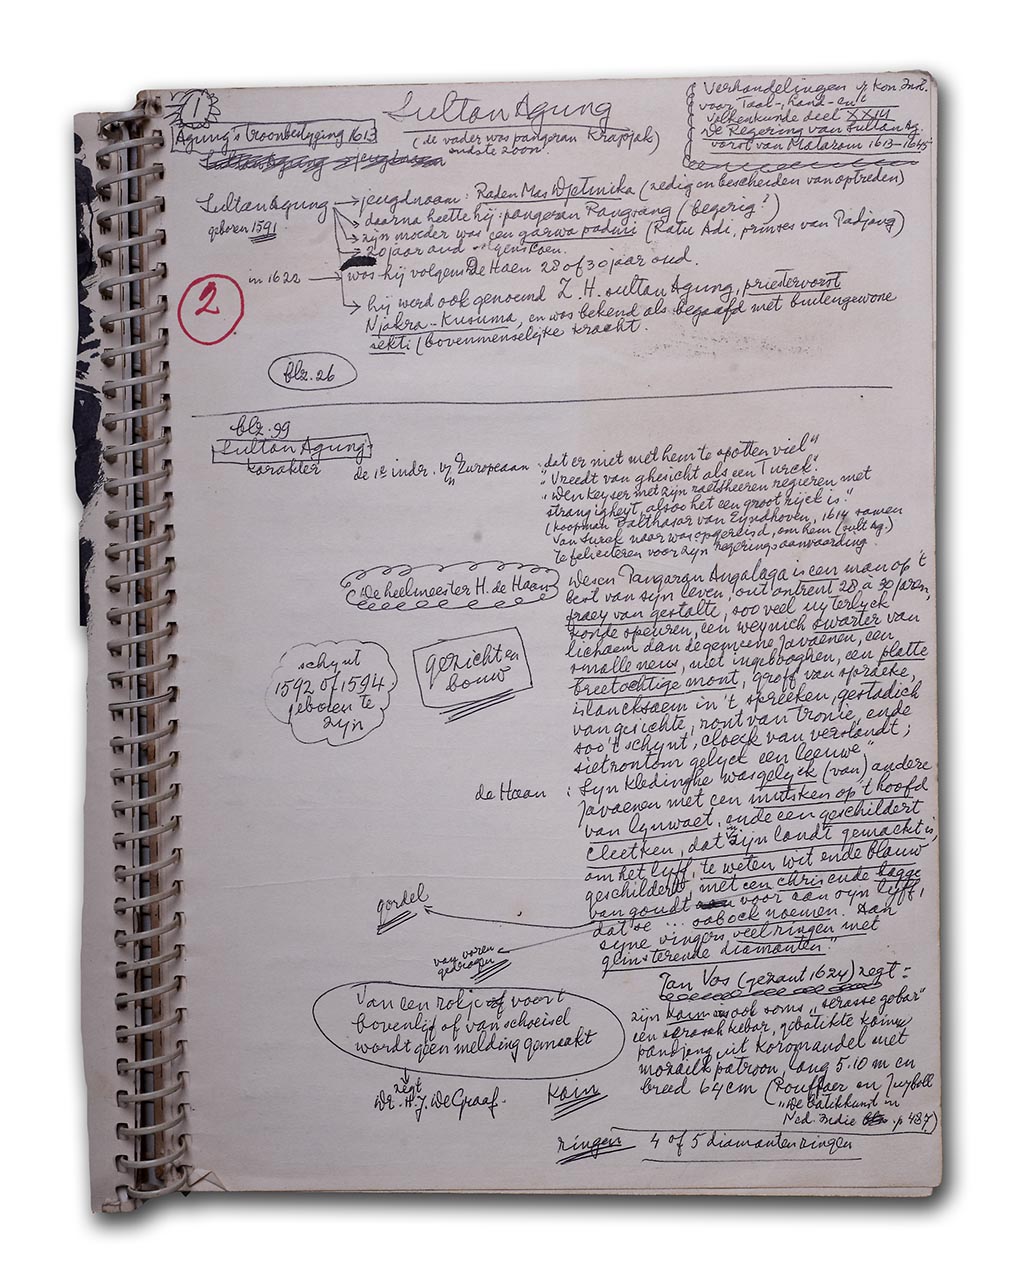 1
Agung's troonbestyging 1613
Sultan Agung
(de vader was pangeran Krapjak)
oudste zoon.
Verhandelingen v/ Kon. Inst.
voor Taal-, Land- en
Volkenkunde deel XXIII
De Regering van Sultan Ag.
vorst van Mataram 1613-1645
Sultan Agung → jeugdnaam: Raden Mas Djetmika (zedig en bescheiden van optreden)
geboren 1591
daarna heette hij pangeran Rangsang (begerig?)
zijn moeder was een garwa padmi (Ratu Adi, prinses van Padjang)
20 jaar oud
in 1622 → was hij volgens De Haen 28 of 30 jaar oud.
2
→ hij werd ook genoemd Z.H. Sultan Agung, priestervorst
Njakra-Kusuma, en was bekend als begaafd met buitengewone
sekti (bovenmenselijke kracht.
blz. 26
blz. 99
Sultan Agung
karakter
de 1e indr. v/ Europeaan: "dat er niet met hem te spotten viel"
"Vreedt van ghesicht als een Turck".
"Den keyser met zijn raetsheeren regieren met
strangigheyt, alsoo het een groot rijck is."
(koopman Balthasar van Eyndhoven, 1614 samen
van Surck naar was opgereisd, om hem (Sult. Ag.)
te feliciteren voor zijn regeringsaanvaarding.
De heelmeester H. de Haan
Desen Pangaran Angalaga is een man op 't
best van syn leven, out ontrent 28 à 30 jaren,
fraey van gestalte, soo veel uyterlyck
konde speuren, een weynich swarter van
lichaem dan de gemeene Javaenen, een
smalle neus, niet ingebooghen, een platte
breetachtige mont, groff van spraeke,
is lancksaem in 't spreeken, gestadich
van gesichte, ront van tronie, ende
soo 't schynt, cloeck van verstandt;
siet rontom gelyck een leeuwe".
schijnt
1592 of 1594
geboren te
zijn
gezicht en
bouw
de Haan : Syn kledinghe was gelyck (van) andere
Javaenen met een mutsken op 't hoofd
van lynwaet, ende een geschildert
cleetken, dat in zijn landt gemackt is,
om het lyff, te weten wit ende blauw
geschildert, met een chris ende bagge
van goudt voor aan syn lyff,
dat se ... sabock noemen. Aan
syne vingers veel ringen met
glinsterende diamanten".
gordel
van voren
gedragen
Van een rokje of voort
bovenlijf of van schoeisel
wordt geen melding gemaakt
zegt
Dr. H.J. De Graaf.
Jan Vos (gezant 1624) zegt =
zijn kain is ook soms "serasse gobar"
een serassah kebar, gebatikte kain
pandjang uit Koromandel met
mozaiek patroon, lang 5.10 m en
breed 64 cm (Rouffaer en Juyboll
"De batikkunst in
Ned. Indië p. 487)
kain
ringen 4 of 5 diamanten ringen